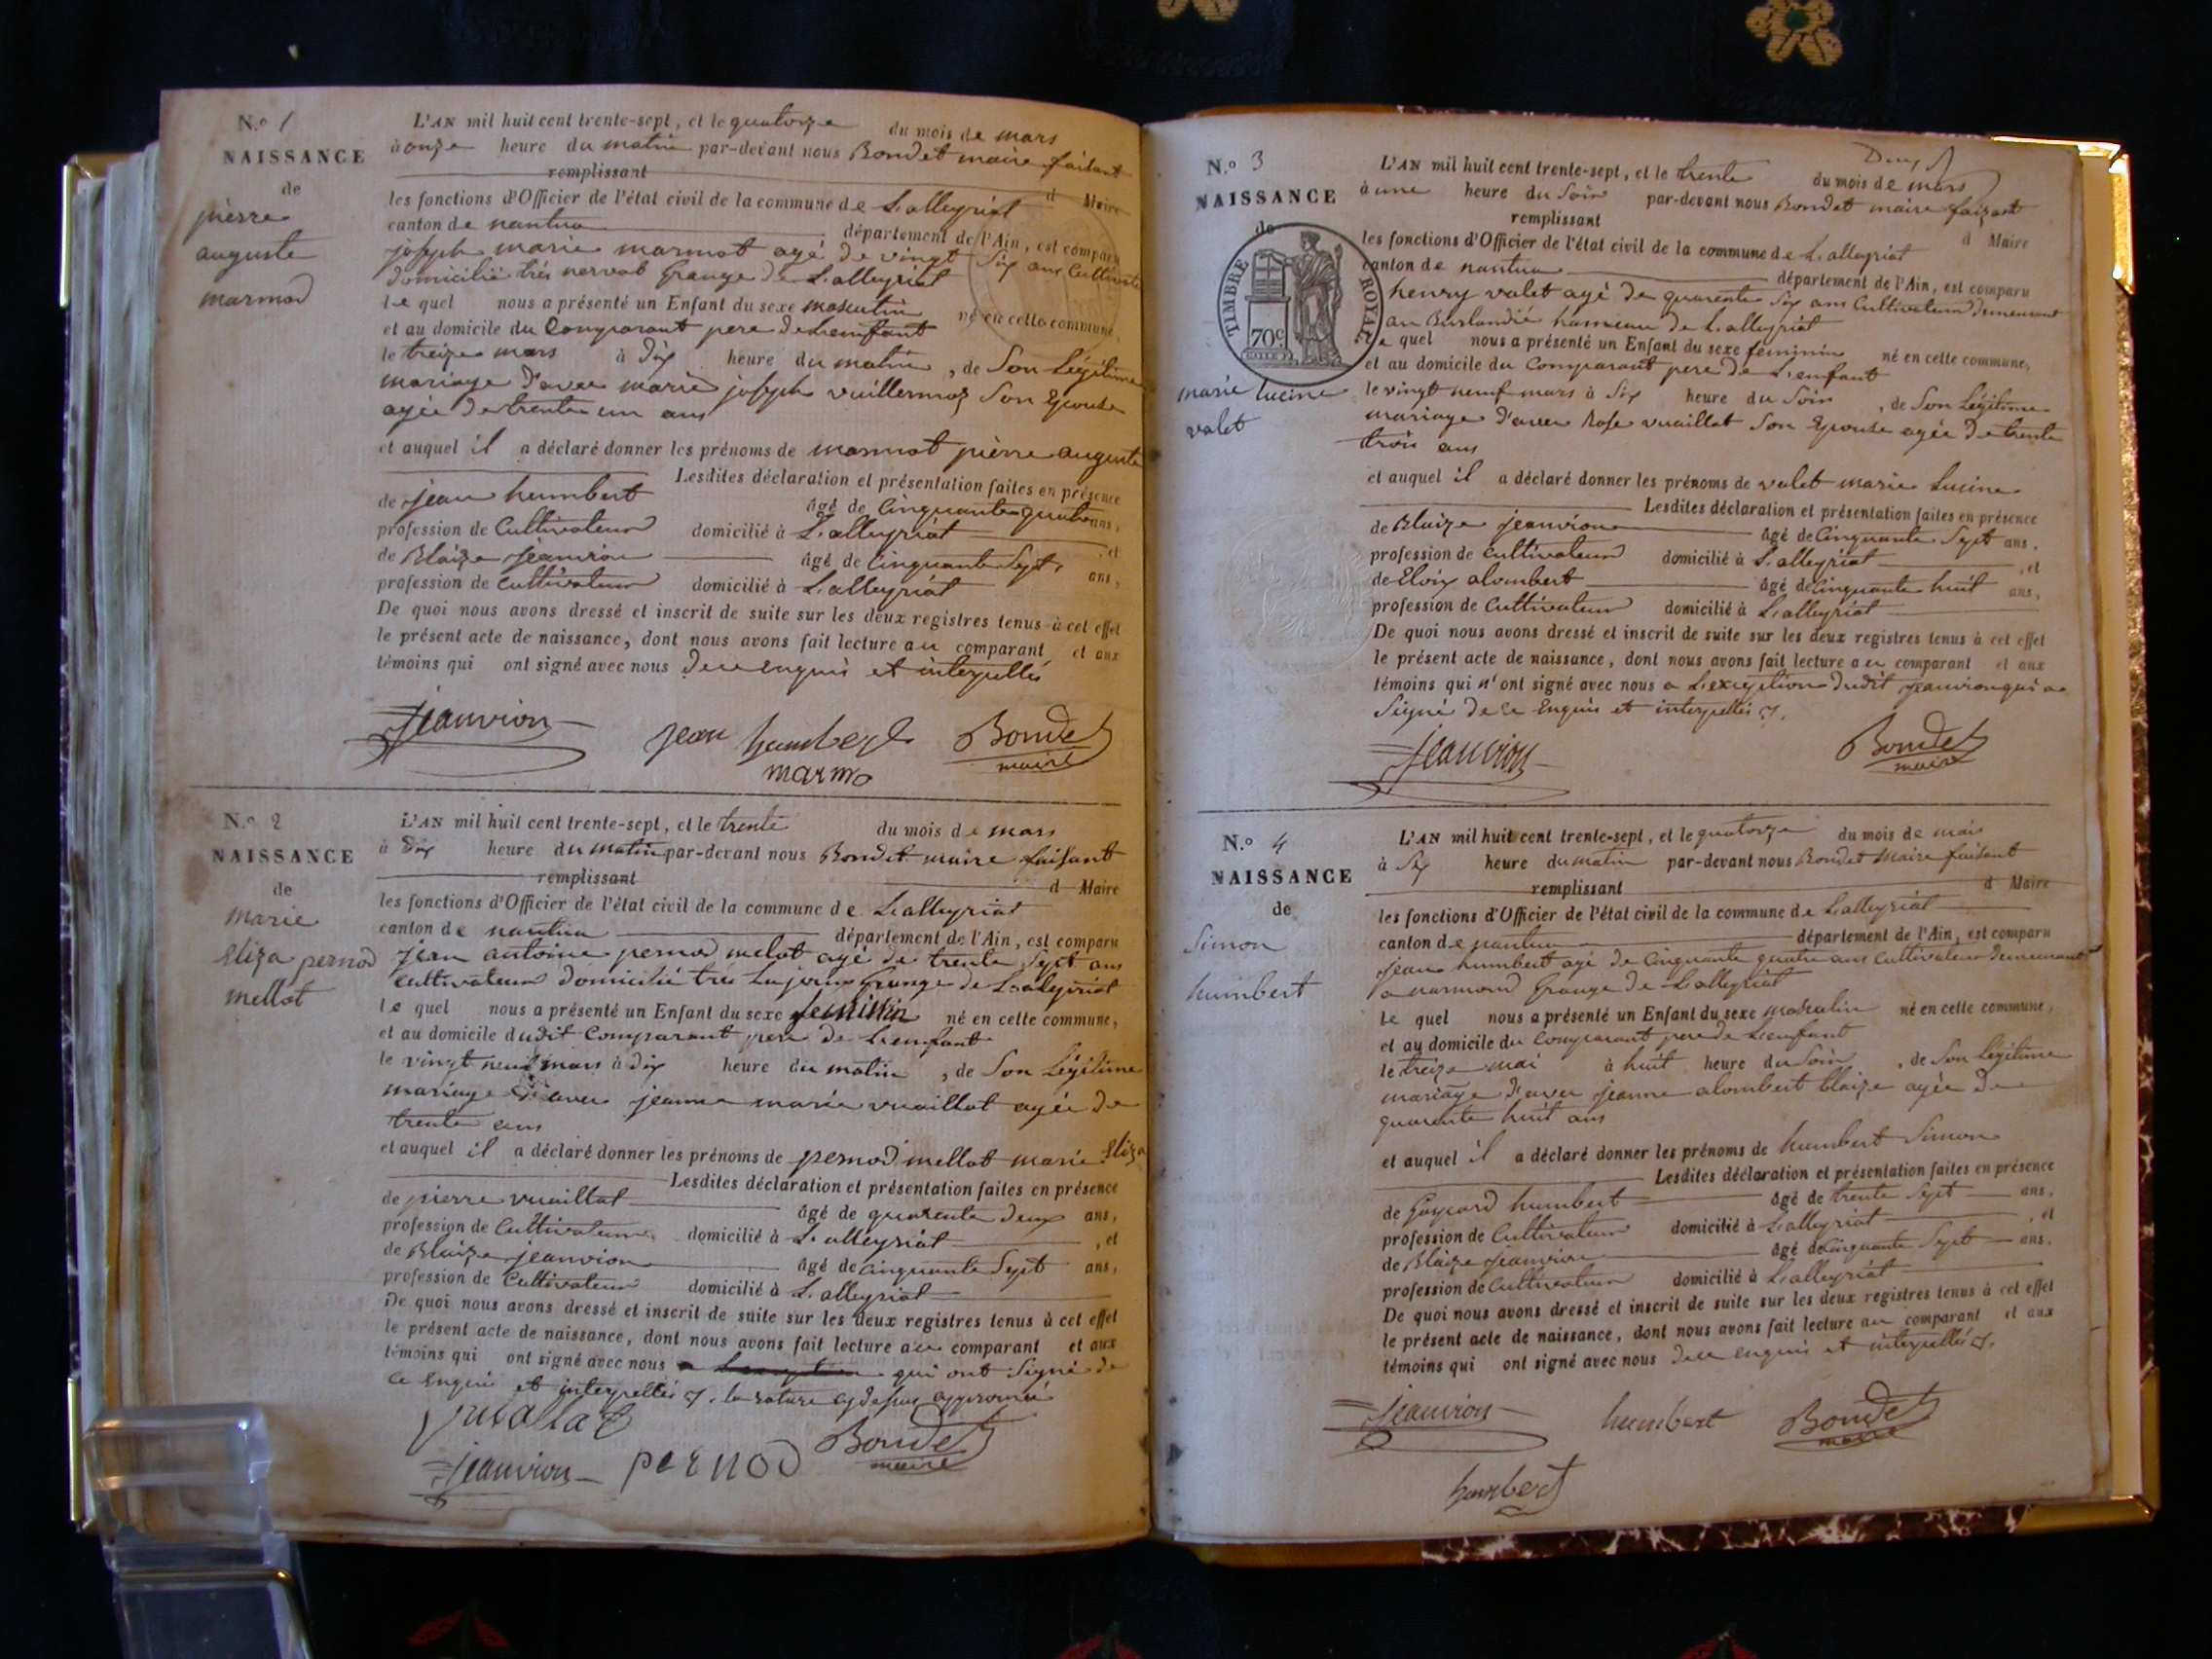 N.o 1
NAISSANCE
de
pierre
auguste
marmod
L'AN mil huit cent trente-sept, et le quatorze du mois de mars
à onze heure du matin par-devant nous Bondet maire faisant
remplissant d Maire
les fonctions d'Officier de l'état civil de la commune de Lalleyriat
canton de nantua département de l'Ain, est comparu
joseph marie marmot agé de vingt six ans Cultivateur
domicilié grange de Lalleyriat
le quel nous a présenté un Enfant du sexe masculin né en cette commune,
et au domicile du Comparant pere de Lenfant
le treize mars à dix heure du matin, de Son Légitime
mariage d'avec marie joseph vuillermoz Son Epouse
agée de trente un ans
et auquel il a déclaré donner les prénoms de marmot pierre auguste
Lesdites déclaration et présentation faites en présence
de jean humbert âgé de Cinquante quatre ans,
profession de Cultivateur domicilié à Lalleyriat, et
de Blaize jeanvion âgé de Cinquante Sept ans,
profession de Cultivateur domicilié à Lalleyriat
De quoi nous avons dressé et inscrit de suite sur les deux registres tenus à cet effet
le présent acte de naissance, dont nous avons fait lecture au comparant et aux
témoins qui ont signé avec nous de ce enquis et interpellés
jeanvion jean humbert Bondet
marmo maire
N.o 2
NAISSANCE
de
marie
eliza pernod
mellot
L'AN mil huit cent trente-sept, et le trente du mois de mars
à dix heure du matin par-devant nous Bondet maire faisant
remplissant d Maire
les fonctions d'Officier de l'état civil de la commune de Lalleyriat
canton de nantua département de l'Ain, est comparu
jean antoine pernod melot agé de trente Sept ans
cultivateur domicilié grange de Lalleyriat
le quel nous a présenté un Enfant du sexe feminin né en cette commune,
et au domicile dudit Comparant pere de Lenfant
le vingt neuf mars à dix heure du matin, de Son Légitime
mariage d'avec jeanne marie vuaillat agée de
trente ans
et auquel il a déclaré donner les prénoms de pernod mellot marie Eliza
Lesdites déclaration et présentation faites en présence
de pierre vuaillat âgé de quarente deux ans,
profession de Cultivateur domicilié à Lalleyriat, et
de Blaize jeanvion âgé de Cinquante Sept ans,
profession de Cultivateur domicilié à Lalleyriat
De quoi nous avons dressé et inscrit de suite sur les deux registres tenus à cet effet
le présent acte de naissance, dont nous avons fait lecture au comparant et aux
témoins qui ont signé avec nous qui ont Signé de
ce Enquis et interpellés la rature approuvé
vuallat
jeanvion pernod Bondet
maire
N.o 3
NAISSANCE
de
TIMBRE ROYAL
70c
marie lucine
valet
L'AN mil huit cent trente-sept, et le trente du mois de mars
à une heure du Soir par-devant nous Bondet maire faisant
remplissant d Maire
les fonctions d'Officier de l'état civil de la commune de Lalleyriat
canton de nantua département de l'Ain, est comparu
henry valet agé de quarente six ans Cultivateur demeurant
au Burlandié hameau de Lalleyriat
le quel nous a présenté un Enfant du sexe feminin né en cette commune,
et au domicile du Comparant pere de Lenfant
le vingt neuf mars à Six heure du Soir, de Son Légitime
mariage d'avec Rose vuaillat Son Epouse agée de trente
trois ans
et auquel il a déclaré donner les prénoms de valet marie Lucine
Lesdites déclaration et présentation faites en présence
de Blaize jeanvion âgé de Cinquante Sept ans,
profession de Cultivateur domicilié à Lalleyriat, et
de Eloix alombert âgé de Cinquante huit ans,
profession de Cultivateur domicilié à Lalleyriat
De quoi nous avons dressé et inscrit de suite sur les deux registres tenus à cet effet
le présent acte de naissance, dont nous avons fait lecture au comparant et aux
témoins qui n'ont signé avec nous a Lexception dudit jeanvion qui a
Signé de ce Enquis et interpellés
jeanvion Bondet
maire
N.o 4
NAISSANCE
de
Simon
humbert
L'AN mil huit cent trente-sept, et le quatorze du mois de mai
à Six heure du matin par-devant nous Bondet Maire faisant
remplissant d Maire
les fonctions d'Officier de l'état civil de la commune de Lalleyriat
canton de nantua département de l'Ain, est comparu
jean humbert agé de Cinquante quatre ans Cultivateur demeurant
a marmond Grange de Lalleyriat
le quel nous a présenté un Enfant du sexe masculin né en cette commune,
et au domicile du Comparant pere de Lenfant
le treize mai à huit heure du Soir, de Son Légitime
mariage d'avec jeanne alombert blaize agée de
quarente huit ans
et auquel il a déclaré donner les prénoms de humbert Simon
Lesdites déclaration et présentation faites en présence
de Gaspard humbert âgé de trente Sept ans,
profession de Cultivateur domicilié à Lalleyriat, et
de Blaize jeanvion âgé de Cinquante Sept ans,
profession de Cultivateur domicilié à Lalleyriat
De quoi nous avons dressé et inscrit de suite sur les deux registres tenus à cet effet
le présent acte de naissance, dont nous avons fait lecture au comparant et aux
témoins qui ont signé avec nous de ce enquis et interpellés
jeanvion humbert Bondet
maire
humbert